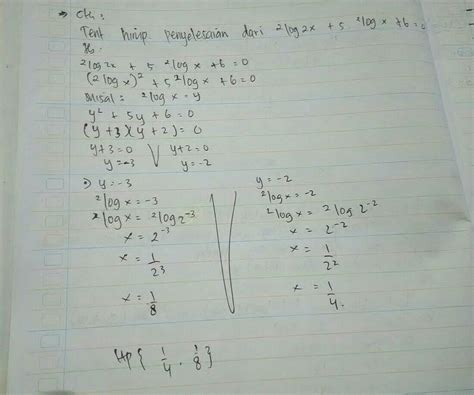 → Cth :
Tent himp. penyelesaian dari ²log 2x + 5 ²log x + 6 = 0
Jb :
²log 2x + 5 ²log x + 6 = 0
(²log x)² + 5 ²log x + 6 = 0
Misal : ²log x = y
y² + 5y + 6 = 0
(y + 3)(y + 2) = 0
y + 3 = 0 V y + 2 = 0
y = -3 y = -2
•) y = -3
²log x = -3
²log x = ²log 2⁻³
x = 2⁻³
x = 1/2³
x = 1/8
y = -2
²log x = -2
²log x = ²log 2⁻²
x = 2⁻²
x = 1/2²
x = 1/4.
Hp { 1/4 . 1/8 }